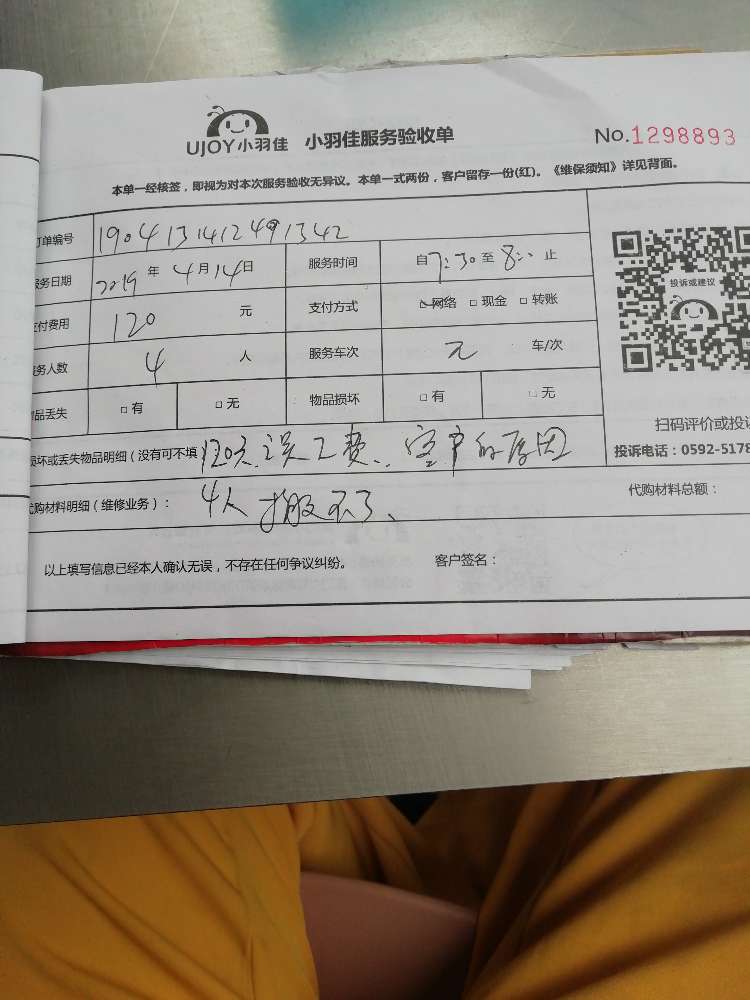 UJOY小羽佳 小羽佳服务验收单 No.1298893
本单一经核签，即视为对本次服务验收无异议。本单一式两份，客户留存一份(红)。《维保须知》详见背面。
订单编号 1904131412491342
服务日期 2019年4月14日 服务时间 自7:30至8:00止
支付费用 120元 支付方式 网络 □现金 □转账
服务人数 4人 服务车次 元 车/次
品丢失 □有 □无 物品损坏 □有 □无
投诉或建议
损坏或丢失物品明细（没有可不填 120元、误工费、客户的原因
扫码评价或投诉
投诉电话：0592-5178
代购材料明细（维修业务）： 4人搬不了、 代购材料总额：
以上填写信息已经本人确认无误，不存在任何争议纠纷。 客户签名：